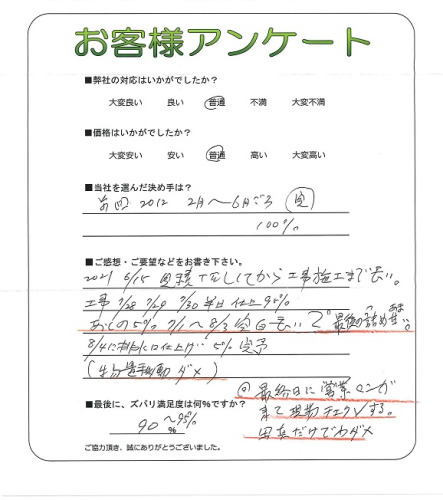 お客様アンケート
■弊社の対応はいかがでしたか?
大変良い 良い 普通 不満 大変不満
■価格はいかがでしたか?
大変安い 安い 普通 高い 大変高い
■当社を選んだ決め手は?
前回 2012 2月〜6月ごろ 完
100%
■ご感想・ご要望などをお書き下さい。
2021 6/15 見積 してから工事施工まで長い。
工事 7/28 7/29 7/30 半日 仕上 95%
あとの5% 〜8/3 空白 長い 最後の詰め甘い。
8/4に排水口仕上げ 5% 完了
ダメ)
■最後に、ズバリ満足度は何%ですか?
90〜95%
%
回 最終日に営業マンが
来て現場チェックする。
写真だけでわダメ
ご協力頂き、誠にありがとうございました。